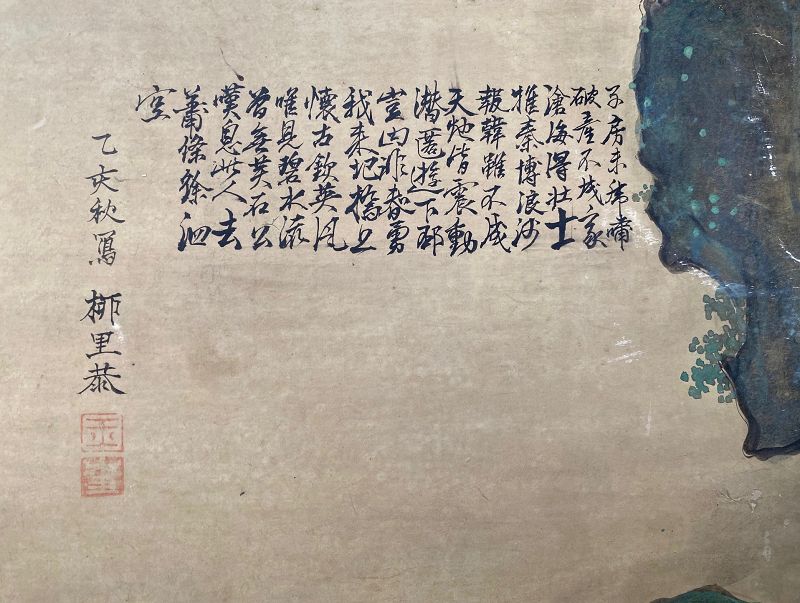 子房未虎嘯
破產不成家
滄海得壯士
推秦博浪沙
報韓雖不成
天地皆震動
潛匿遊下邳
豈曰非智勇
我来圯橋上
懷古欽英風
唯見碧水流
曾無黃石公
嘆息此人去
蕭條徐泗
空
乙亥秋寫 柳里恭